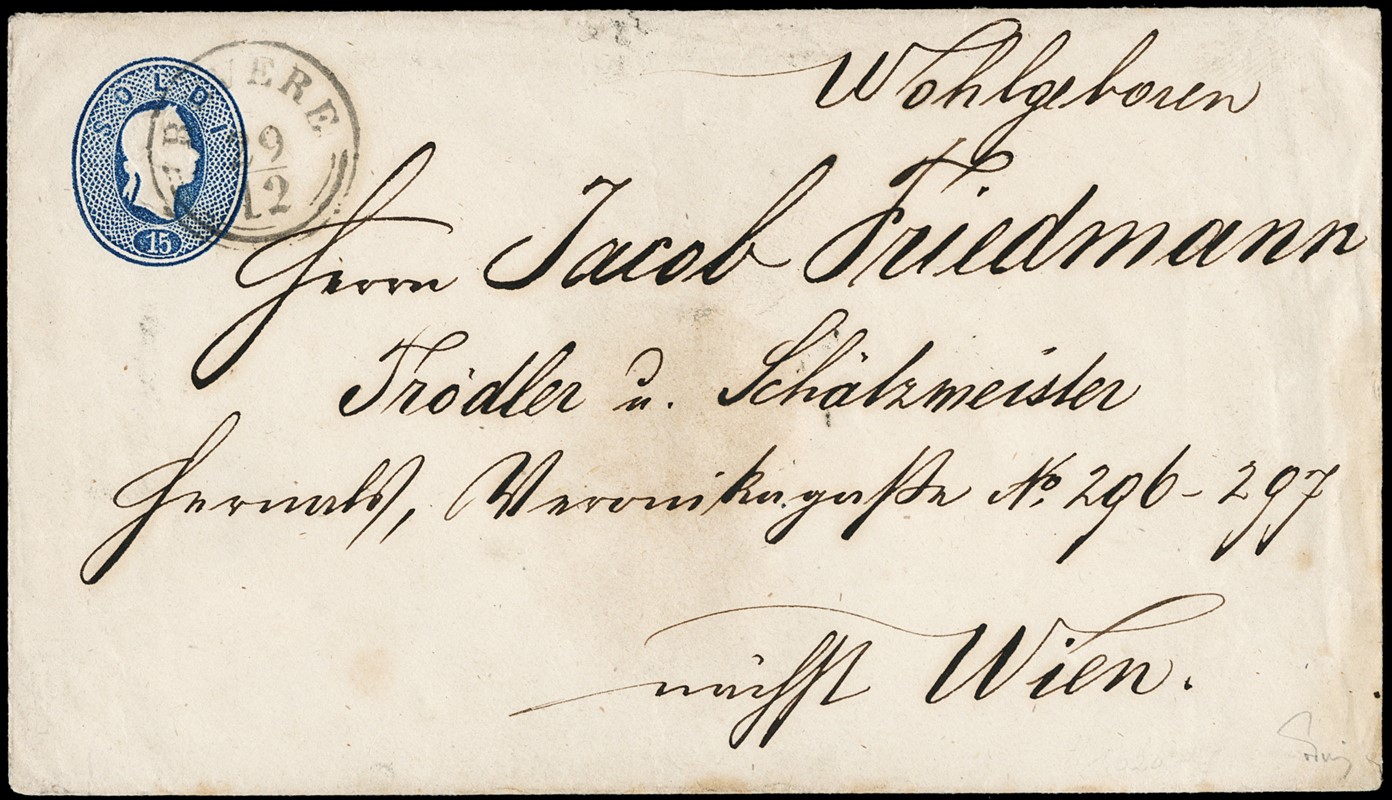 SOLDI
15
VERE
29
12
Wohlgeboren
Herrn Jacob Friedmann
Trödler u. Schätzmeister
Hernals, Veronikagaße No 296-297
nächst Wien.